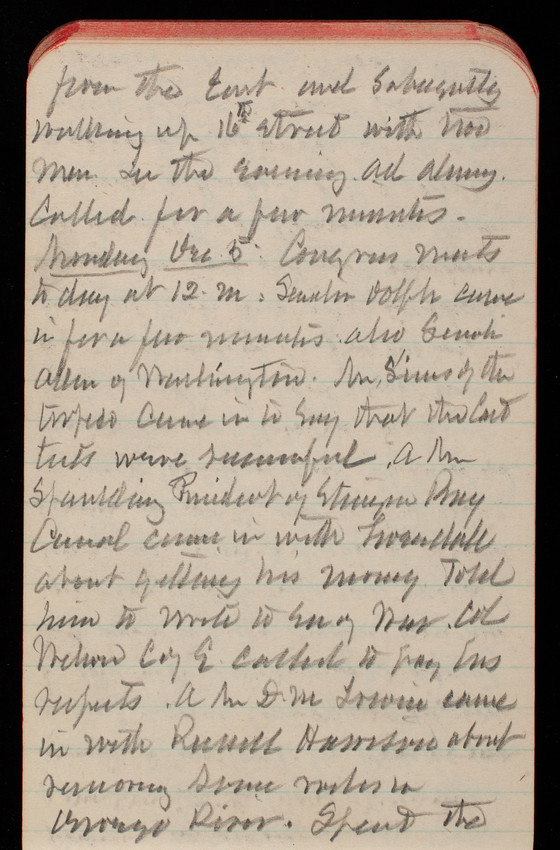 from the East and Subequtly
walking up 16th Street with two
men. In the evening. Ad
Called for a few minutes.
Monday Dec 5. Congress meets
to day at 12. M. Senator Dolph came
in for a few minutes also Senator
Allen of Washington. Mr. Sims of the
torpedo came in to say that the last
tests were successful. A Mr
Spaulding President of Sturgeon Bay
Canal came in with Truesdale
about getting his money Told
him to write to Secy War. Col
Wilson C of E called to pay his
respects. A Mr D. M came
in with Russell Harrison about
removing some rocks in
River. Spent the